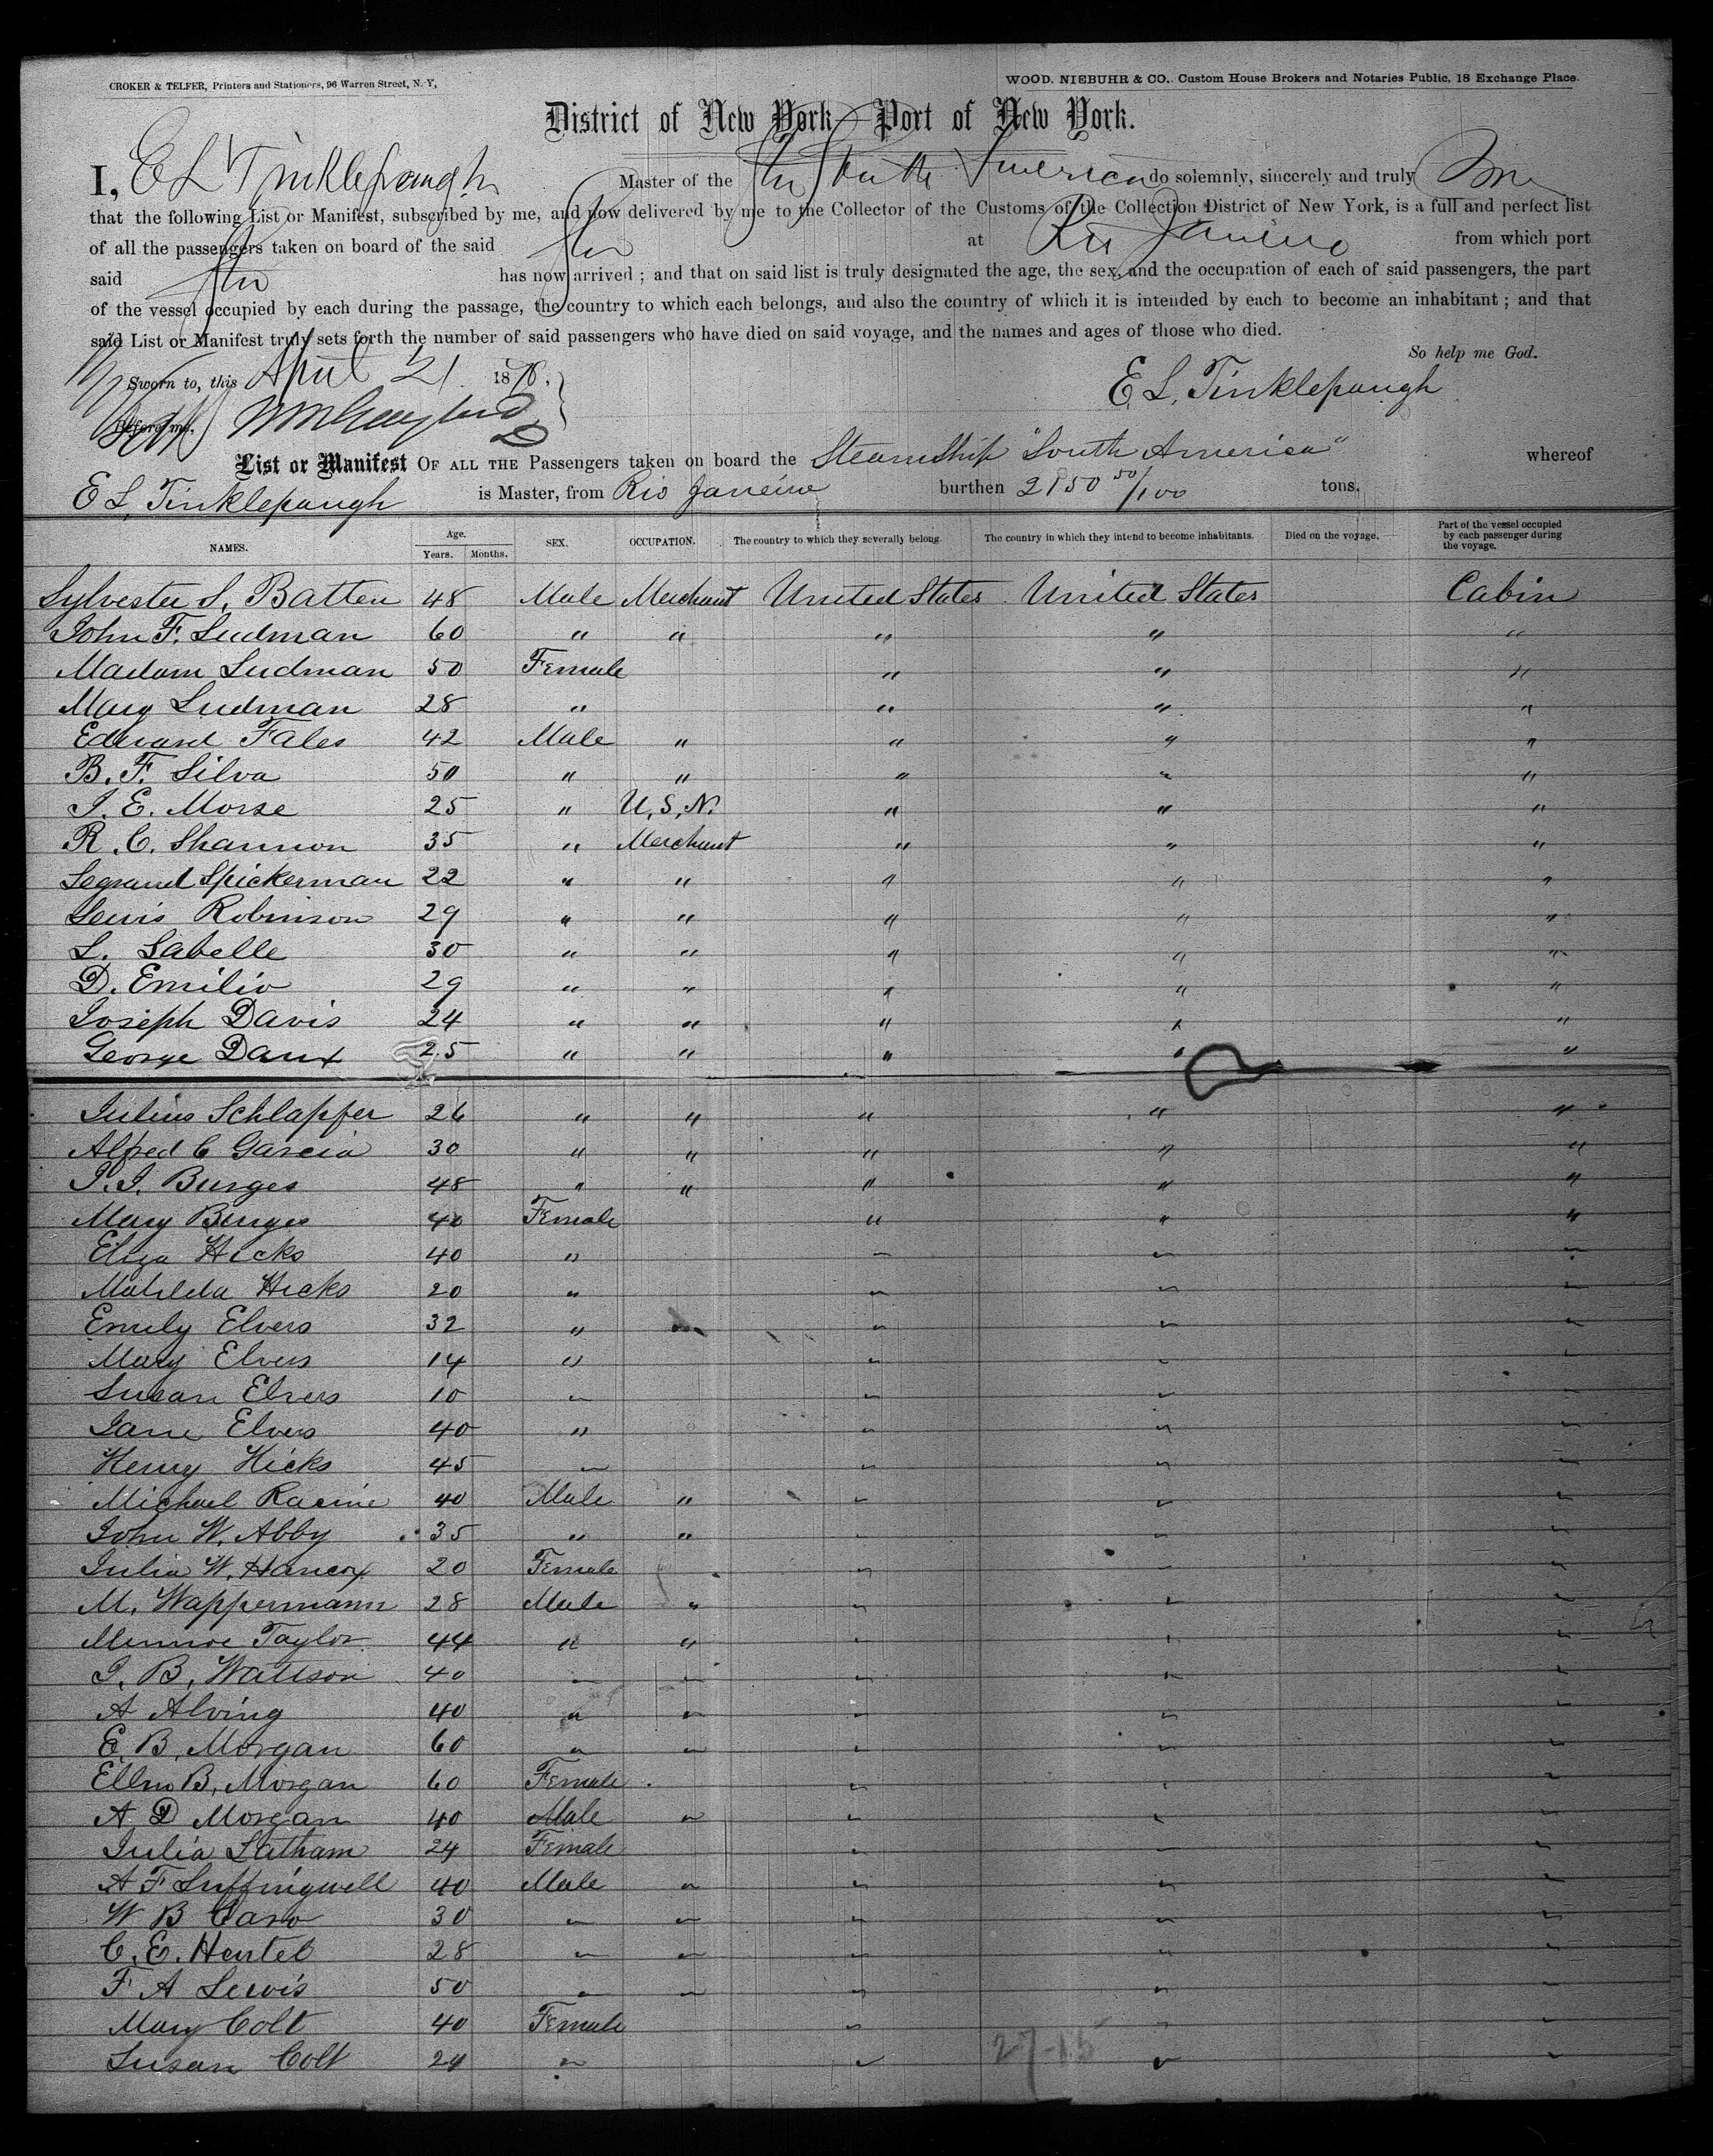 CROKER & TELFER, Printers and Stationers, 96 Warren Street, N.Y,
WOOD, NIEBUHR & CO., Custom House Brokers and Notaries Public, 18 Exchange Place.
District of New York—Port of New York.
I, E L Tinklepaugh Master of the Str South America do solemnly, sincerely and truly
that the following List or Manifest, subscribed by me, and now delivered by me to the Collector of the Customs of the Collection District of New York, is a full and perfect list
of all the passengers taken on board of the said Str at Rio Janeiro from which port
said Str has now arrived; and that on said list is truly designated the age, the sex, and the occupation of each of said passengers, the part
of the vessel occupied by each during the passage, the country to which each belongs, and also the country of which it is intended by each to become an inhabitant; and that
said List or Manifest truly sets forth the number of said passengers who have died on said voyage, and the names and ages of those who died.
So help me God.
Sworn to, this April 21 1870.
E. L. Tinklepaugh
Before me,
List or Manifest OF ALL THE Passengers taken on board the Steamship "South America" whereof
E L, Tinklepaugh is Master, from Rio Janeiro burthen 2150 50/100 tons.
NAMES. Age. Years. Months. SEX. OCCUPATION. The country to which they severally belong. The country in which they intend to become inhabitants. Died on the voyage. Part of the vessel occupied by each passenger during the voyage.
Sylvester S. Batten 48 Male Merchant United States United States Cabin
John F. Ludman 60 " " " " "
Madam Ludman 50 Female " " "
Mary Ludman 28 " " " "
Edward Fales 42 Male " " " "
B. F. Silva 50 " " " " "
J. E. Morse 25 " U.S.N. " " "
R. C. Shannon 35 " Merchant " " "
Legrand Spickerman 22 " " " " "
Lewis Robinson 29 " " " " "
L. Labelle 30 " " " " "
D. Emilio 29 " " " " "
Joseph Davis 24 " " " " "
George Daux 25 " " " " "
Julius Schlapfer 26 " " " " "
Alfred C Garcia 30 " " " " "
J. J. Burges 48 " " " " "
Mary Burges 40 Female " " "
Eliza Hicks 40 " " " "
Matilda Hicks 20 " " " "
Emily Elvers 32 " " " " "
Mary Elvers 14 " " " "
Susan Elvers 10 " " " "
Jane Elvers 40 " " " "
Henry Hicks 45 " " " "
Michael Racine 40 Male " " " "
John W. Abby 35 " " " " "
Julia W. Hancox 20 Female " " "
M. Wappermann 28 Male " " " "
Munroe Taylor 44 " " " " "
J. B. Wattson 40 " " " " "
A Alving 40 " " " " "
E. B. Morgan 60 " " " " "
Ellen B. Morgan 60 Female " " "
A. D Morgan 40 Male " " " "
Julia Latham 24 Female " " "
A F Luffingwell 40 Male " " " "
W B Caso 30 " " " " "
C. E. Hertel 28 " " " " "
F A Lewis 50 " " " " "
Mary Colt 40 Female " " "
Susan Colt 24 " " " "
27-15